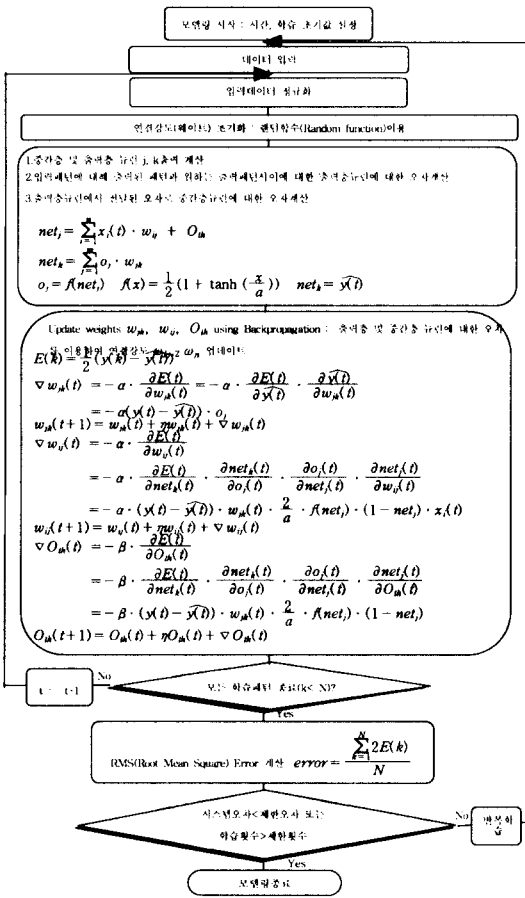 모델링 시작 : 시간, 학습 초기값 설정
데이터 입력
입력데이터 정규화
연결강도(웨이트) 초기화 : 랜덤함수(Random function)이용
1.중간층 및 출력층 뉴런 j, k출력 계산
2.입력패턴에 대해 출력된 패턴과 원하는 출력패턴사이에 대한 출력층뉴런에 대한 오차계산
3.출력층뉴런에서 전달된 오차로 중간층뉴런에 대한 오차계산
net_j = \sum_{i=1}^{n} x_i(t) · w_{ij} + O_{th}
net_k = \sum_{j=1}^{n} o_j · w_{jk}
o_j = f(net_j) f(x) = \frac{1}{2}(1 + tanh(\frac{x}{a})) net_k = \widehat{y(t)}
Update weights w_{jk}, w_{ij}, O_{th} using Backpropagation : 출력층 및 중간층 뉴런에 대한 오차
를 이용하여 연결강도 업데이트
E(k) = \frac{1}{2}(y(k) − \widehat{y(t)})^2
∇w_{jk}(t) = −α · \frac{∂E(t)}{∂w_{jk}(t)} = −α · \frac{∂E(t)}{∂\widehat{y(t)}} · \frac{∂\widehat{y(t)}}{∂w_{jk}(t)}
= −α(y(t) − \widehat{y(t)}) · o_j
w_{jk}(t+1) = w_{jk}(t) + ηw_{jk}(t) + ∇w_{jk}(t)
∇w_{ij}(t) = −α · \frac{∂E(t)}{∂w_{ij}(t)}
= −α · \frac{∂E(t)}{∂net_k(t)} · \frac{∂net_k(t)}{∂o_j(t)} · \frac{∂o_j(t)}{∂net_j(t)} · \frac{∂net_j(t)}{∂w_{ij}(t)}
= −α · (y(t) − \widehat{y(t)}) · w_{jk}(t) · \frac{2}{a} · f(net_j) · (1 − net_j) · x_i(t)
w_{ij}(t+1) = w_{ij}(t) + ηw_{ij}(t) + ∇w_{ij}(t)
∇O_{th}(t) = −β · \frac{∂E(t)}{∂O_{th}(t)}
= −β · \frac{∂E(t)}{∂net_k(t)} · \frac{∂net_k(t)}{∂o_j(t)} · \frac{∂o_j(t)}{∂net_j(t)} · \frac{∂net_j(t)}{∂O_{th}(t)}
= −β · (y(t) − \widehat{y(t)}) · w_{jk}(t) · \frac{2}{a} · f(net_j) · (1 − net_j)
O_{th}(t+1) = O_{th}(t) + ηO_{th}(t) + ∇O_{th}(t)
No
모든 학습패턴 종료(k< N)?
Yes
RMS(Root Mean Square) Error 계산 error = \frac{\sum_{k=1}^{N} 2E(k)}{N}
시스템오차<제한오차 또는
학습횟수>제한횟수
No
반복학
습
Yes
모델링종료